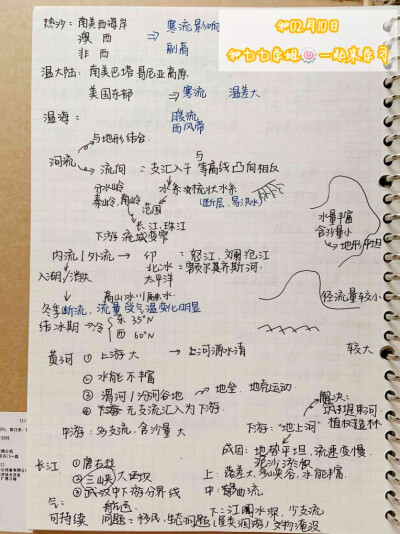 和02月10日
和七七学姐一起来学习
热沙：南美西海岸
澳西 ⇒ 寒流影响
非西 副高
温大陆：南美巴塔哥尼亚高原
美国东部 ⇒ 寒流 温差大
温海： 暖流
西风带
与地形结合
河流
流向 = 支汇入干 与等高线凸向相反
分水岭 水系
秦岭, 南岭
范围 (断层、易洪水)
长江、珠江
下游流域变窄
水量丰富
含沙量小
→地形平坦
内流/外流 → 印 = 怒江、澜沧江
北冰 = 额尔其齐斯河.
太平洋
入湖/消失
高山冰川融水
冬季断流, 流量受气温变化明显
径流量较小
结冰期→冷 东 35°N
西 60°N
较大
黄河 ① 上游大 → 上河源水清
② 水能不丰富
③ 渭河/汾河谷地 → 地垒、地壳运动
④ 下游 无支流汇入为下游.
解决：
植树造林
中游：多支流, 含沙量大
下游："地上河"
成因：地势平坦, 流速变慢
泥沙淤积
长江 ①
② 三峡大西坝
③ 武汉中下游分界线
上：落差大、多峡谷, 水能丰富.
中：曲流
下：江阔水深, 少支流
气： 航运
可持续 问题 = 移民, 生态问题 文物淹没